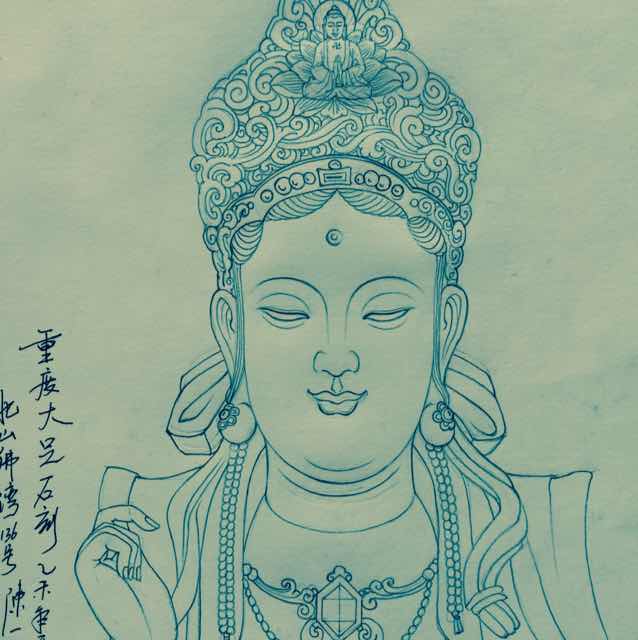 重慶大足石刻 乙未年
北山佛湾136号 陳一